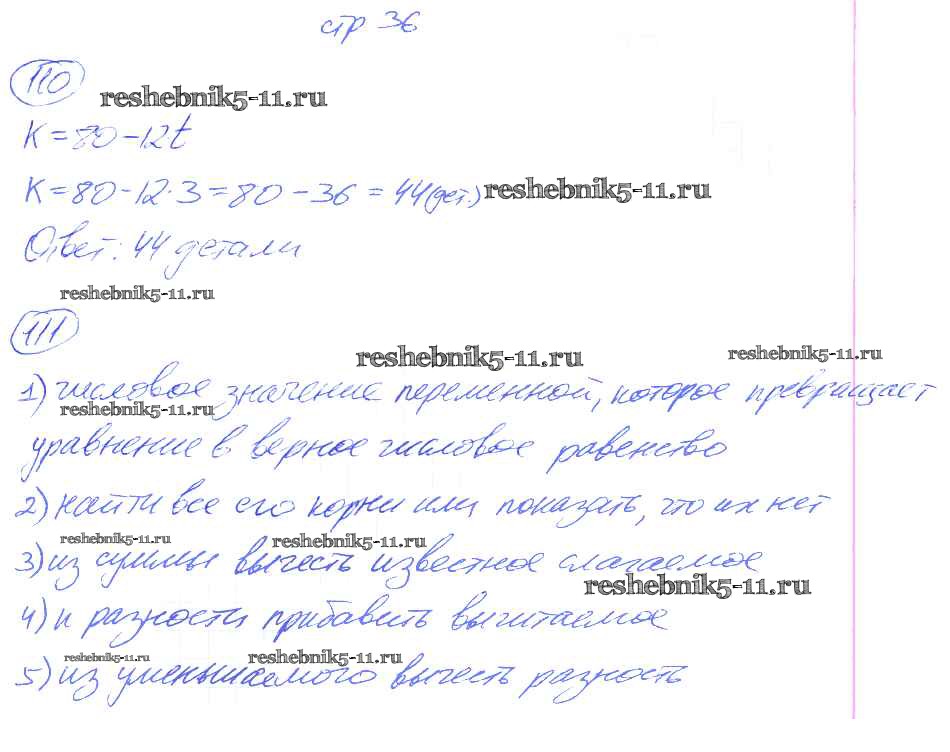 стр 36
110
reshebnik5-11.ru
K = 80 - 12t
K = 80 - 12·3 = 80 - 36 = 44 (дет.) reshebnik5-11.ru
Ответ: 44 детали
reshebnik5-11.ru
111
reshebnik5-11.ru reshebnik5-11.ru
1) числовое значение переменной, которое превращает
reshebnik5-11.ru
уравнение в верное числовое равенство
2) найти все его корни или показать, что их нет
reshebnik5-11.ru reshebnik5-11.ru
3) из суммы вычесть известное слагаемое
reshebnik5-11.ru
4) к разности прибавить вычитаемое
reshebnik5-11.ru reshebnik5-11.ru
5) из уменьшаемого вычесть разность